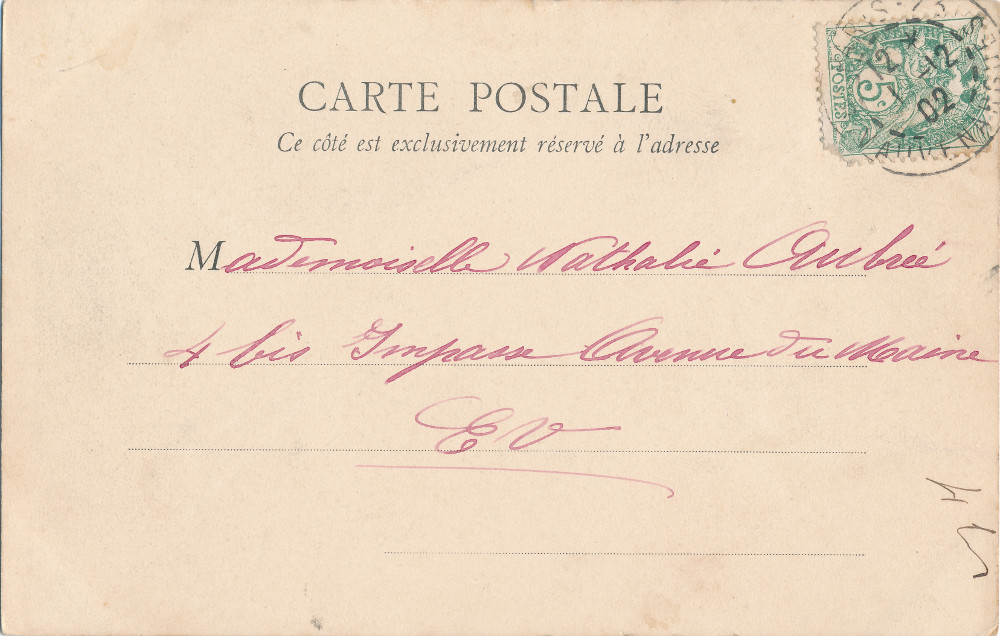 CARTE POSTALE
Ce côté est exclusivement réservé à l'adresse
5c
POSTES
12
12
02
Mademoiselle Nathalie Aubrée
4 bis Impasse Avenue du Maine
EV